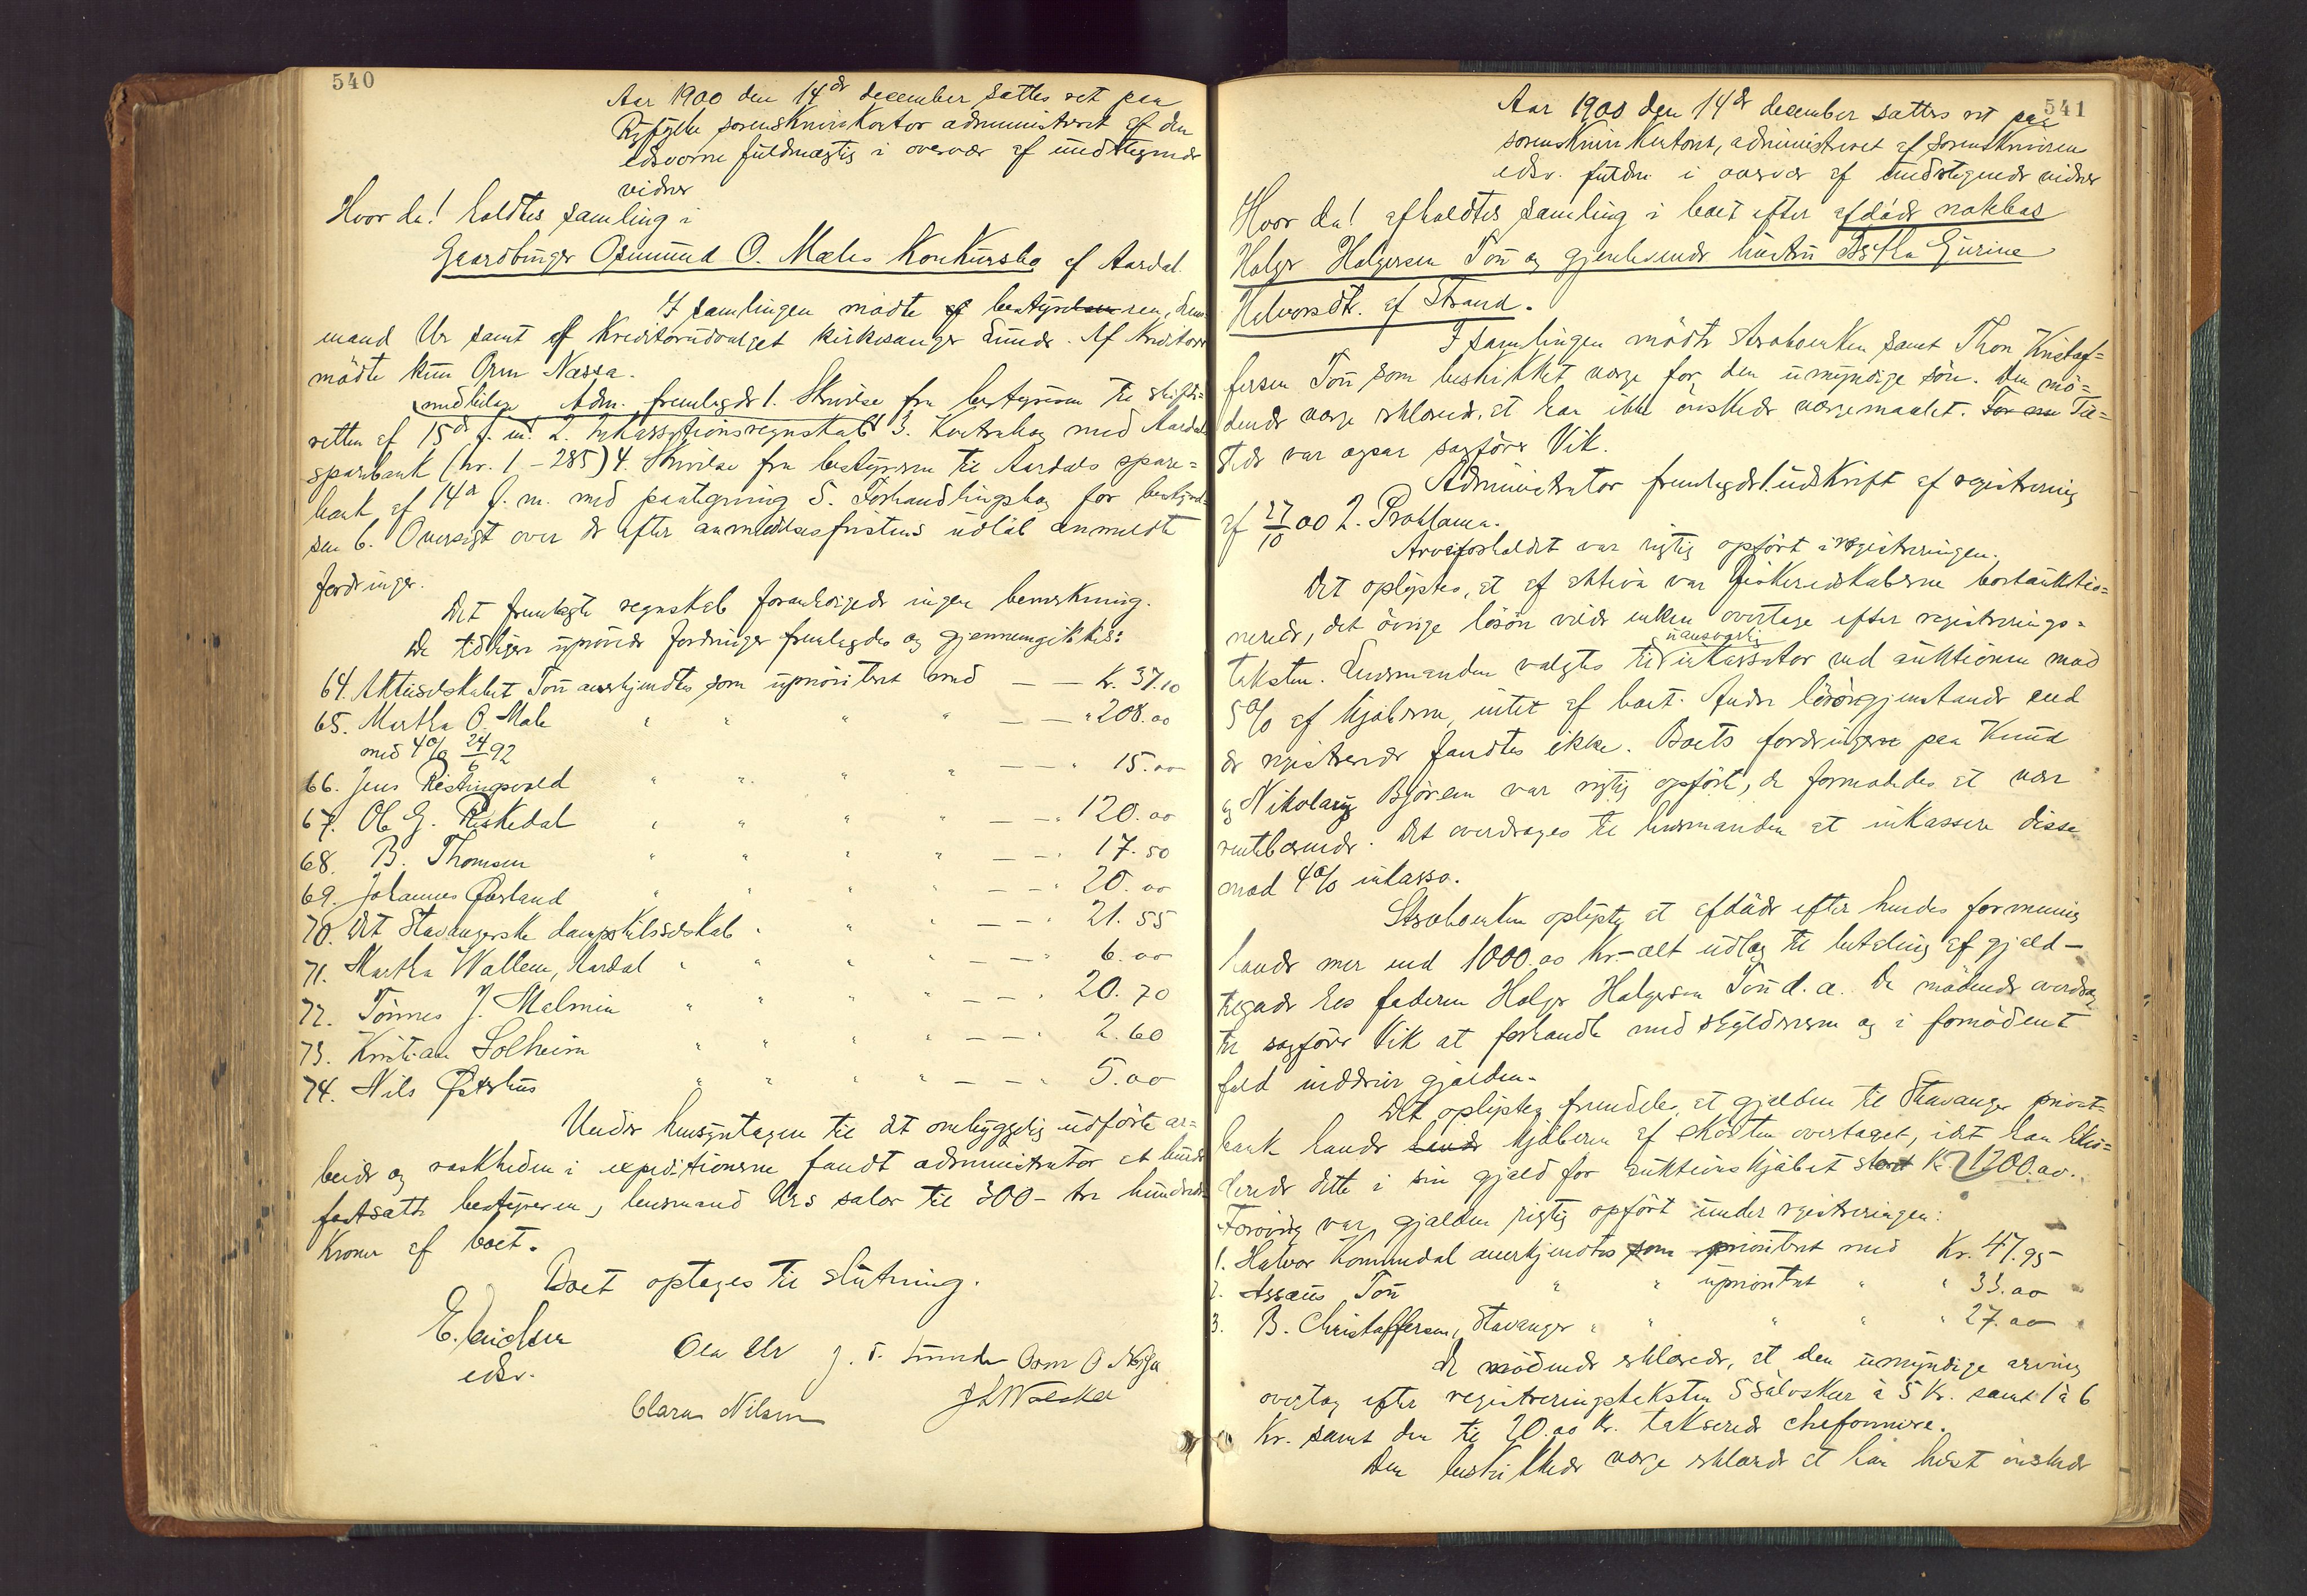 540
Aar 1900 den 14de december sattes ret paa
Ryfylke sorenskriverkontor administreret af den
edsvorne fuldmægtig i overvær af undertegnede
vidner
Hvor da! holdtes samling i
Gaardbruger Osmund O. Mæles Konkursbo af Aardal.
I samlingen mødte af bestyrelsen ren, lens-
mand Ur samt af Kreditorudvalget kirkesanger Lunde. Af Kreditorer
mødte kun Orm Nessa.
Adm. fremlagde 1. Skrivelse fra bestyreren til skifte-
retten af 15de f. m. 2. Inkassationsregnskab 3. Kontrabog med Aardals
sparebank (nr. 1-285) 4. Skrivelse fra bestyreren til Aardals spare-
bank af 14de f. m. med paategning 5. Forhandlingsbog for bestyrel-
sen 6. Oversigt over de efter anmeldelsesfristens udløb anmeldte
fordringer.
Det fremlagte regnskab foranledigede ingen bemerkning.
De tidligere uprøvede fordringer fremlagdes og gjennemgikkes:
64. Aktieselskabet Tou anerkjendtes som uprioriteret med — — Kr. 37.10
65. Martha O. Mæle " " " " — — " 208.00
med 4% 24/6 92
66. Jens Ristingsvold " " " " — — " 15.00
67. Ole G. Riskedal " " " " — — " 120.00
68. B. Thomsen " " " " — — " 17.50
69. Johannes " " " " — — " 20.00
70. Det Stavangerske dampskibsselskab " " " — — " 21.55
71. Martha Wallem, Aardal " " " " — — " 6.00
72. Tønnes J. Malmin " " " " — — " 20.70
73. Kristian Solheim " " " " — — " 2.60
74. Nils " " " " — — " 5.00
Under hensyntagen til det omhyggelig udførte ar-
beide og raskheden i expeditionerne fandt administrator at burde
fastsætte bestyreren, lensmand Urs salær til 300 - tre hundrede
Kroner af boet.
Boet optages til slutning.
E.
edsv.
Ola Ur J. T. Lunde Orm O Nessa
Clara Nilsen
541
Aar 1900 den 14de december sattes ret paa
sorenskriverkontoret, administreret af sorenskriveren
edsv. fuldm. i overvær af undertegnede vidner
Hvor da! afholdtes samling i boet efter afdøde
Holger Holgersen Tou og gjenlevende hustru Bertha Gurine
Halvorsdtr. af Strand.
I samlingen mødte Stervboenken samt Thon Kristof-
fersen Tou som beskikket værge for den umyndige søn. Den mø-
dende værge erklærede, at han ikke ønskede værgemaalet. Til-
stede var ogsaa sagfører Vik.
Administrator fremlagde 1. udskrift af registrering
af 27/10 00 2. Proklama.
Arveforholdet var rigtig opført i registreringen.
Det oplystes, at af aktiva var fiskeredskaberne bortauktio-
nerede, det øvrige løsøre vilde enken overtage efter registrerings-
uansvarlig
taksten. Lensmanden valgtes til inkassator ved auktionen mod
5% af kjøberne, intet af boet. Andre løsøregjenstande end
de registrerede fandtes ikke. Boets fordringer paa Knud
og Nikolay Bjørheim var rigtig opført, de formodedes at være
rentebærende. Det overdrages til lensmanden at inkassere disse
mod 4% inkasso.
Stervboenken oplyste, at afdøde efter hendes formening
havde mer end 1000.00 Kr. - alt udlæg til betaling af gjæld -
tilgode hos faderen Holger Holgersen Tou d. æ. De mødende overdrog
til sagfører Vik at forhandle med skyldneren og i fornødent
fald inddrive gjælden.
Det oplystes fremdeles, at gjælden til Stavanger privat-
bank havde kjøberen af skøiten overtaget, idet han likvi-
derede dette i sin gjæld for auktionskjøbet stort Kr 1200.00.
Forøvrig var gjælden rigtig opført under registreringen:
1. Halvor Kommedal anerkjendtes som prioriteret med Kr. 47.95
2. Assæus Tou " " uprioriteret " " 33.00
3. B. Christoffersen, Stavanger " " " " " 27.00
De mødende erklærede, at den umyndige arving
overtog efter registreringstaksten 5 sølvskeer à 5 Kr. samt 1 à 6
Kr. samt den til 20.00 Kr. takserede chefonniere.
Den beskikkede værge erklærede at han helst ønskede